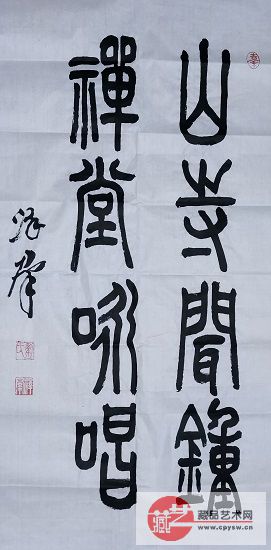 山寺聞鐘
禪堂咏唱
藏品艺术网
www.cpysw.cn